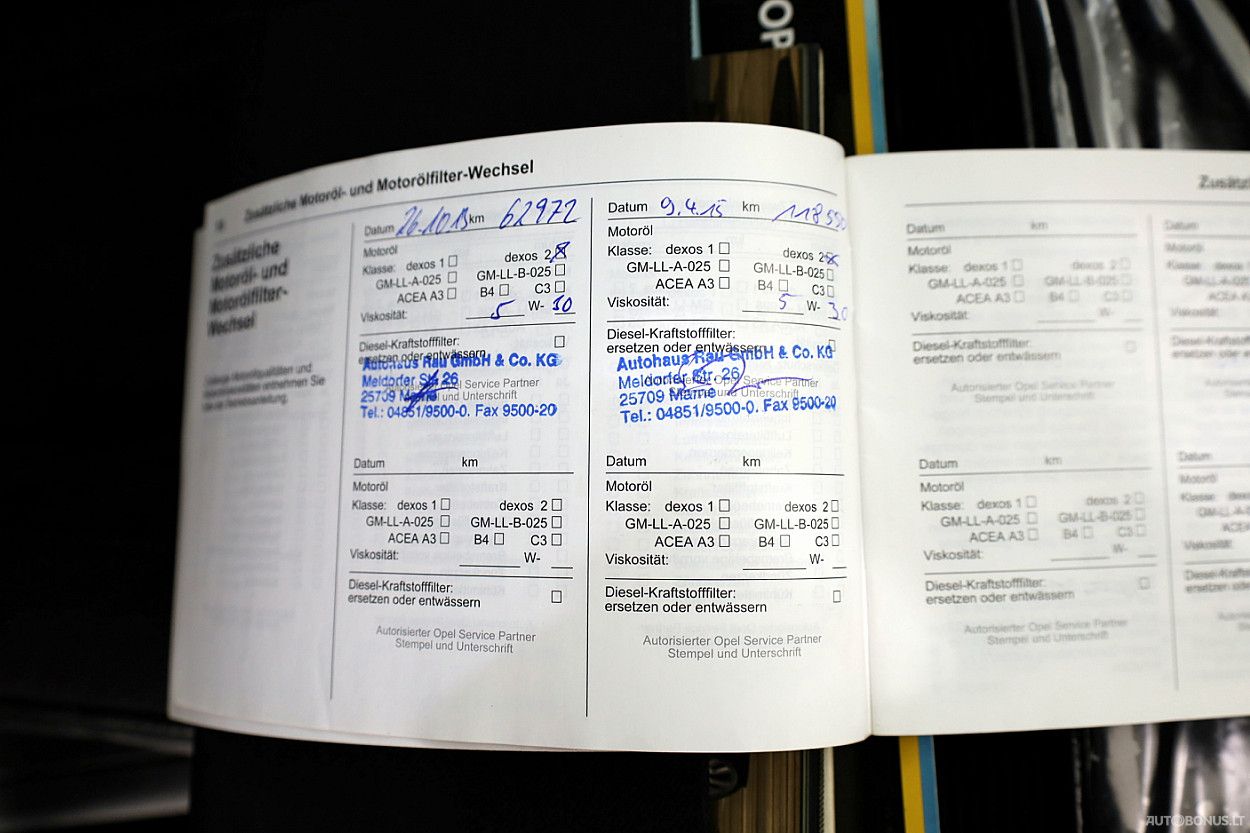 OP
Zusätzliche Motoröl- und Motorölfilter-Wechsel
Zusätzliche
Motoröl- und
Motorölfilter-
Wechsel
Datum 26.10.13 km 62972
Motoröl
Klasse: dexos 1 dexos 2
GM-LL-A-025 GM-LL-B-025
ACEA A3 B4 C3
Viskosität: 5 W- 30
Diesel-Kraftstofffilter:
ersetzen oder entwässern
Autohaus Rau GmbH & Co. KG
Meldorfer Str. 26
25709 Marne
Tel.: 04851/9500-0. Fax 9500-20
Datum km
Motoröl
Klasse: dexos 1 dexos 2
GM-LL-A-025 GM-LL-B-025
ACEA A3 B4 C3
Viskosität: W-
Diesel-Kraftstofffilter:
ersetzen oder entwässern
Autorisierter Opel Service Partner
Stempel und Unterschrift
Datum 9.4.15 km
Motoröl
Klasse: dexos 1 dexos 2
GM-LL-A-025 GM-LL-B-025
ACEA A3 B4 C3
Viskosität: 5 W- 30
Diesel-Kraftstofffilter:
ersetzen oder entwässern
Autohaus Rau GmbH & Co. KG
Meldorfer Str. 26
25709 Marne
Tel.: 04851/9500-0. Fax 9500-20
Datum km
Motoröl
Klasse: dexos 1 dexos 2
GM-LL-A-025 GM-LL-B-025
ACEA A3 B4 C3
Viskosität: W-
Diesel-Kraftstofffilter:
ersetzen oder entwässern
Autorisierter Opel Service Partner
Stempel und Unterschrift
Datum km
Motoröl
Klasse: dexos 1 dexos 2
GM-LL-A-025 GM-LL-B-025
ACEA A3 B4 C3
Viskosität: W-
Diesel-Kraftstofffilter:
ersetzen oder entwässern
Autorisierter Opel Service Partner
Stempel und Unterschrift
Datum km
Motoröl
Klasse: dexos 1 dexos 2
GM-LL-A-025 GM-LL-B-025
ACEA A3 B4 C3
Viskosität: W-
Diesel-Kraftstofffilter:
ersetzen oder entwässern
Autorisierter Opel Service Partner
Stempel und Unterschrift
AUTOBONUS.LT